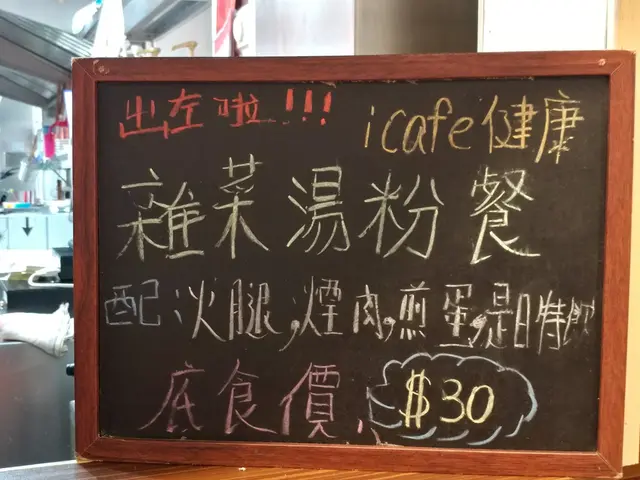 出左啦!!! icafe健康
雜菜湯粉餐
配:火腿,煙肉,煎蛋,是日特飲
底食價, $30